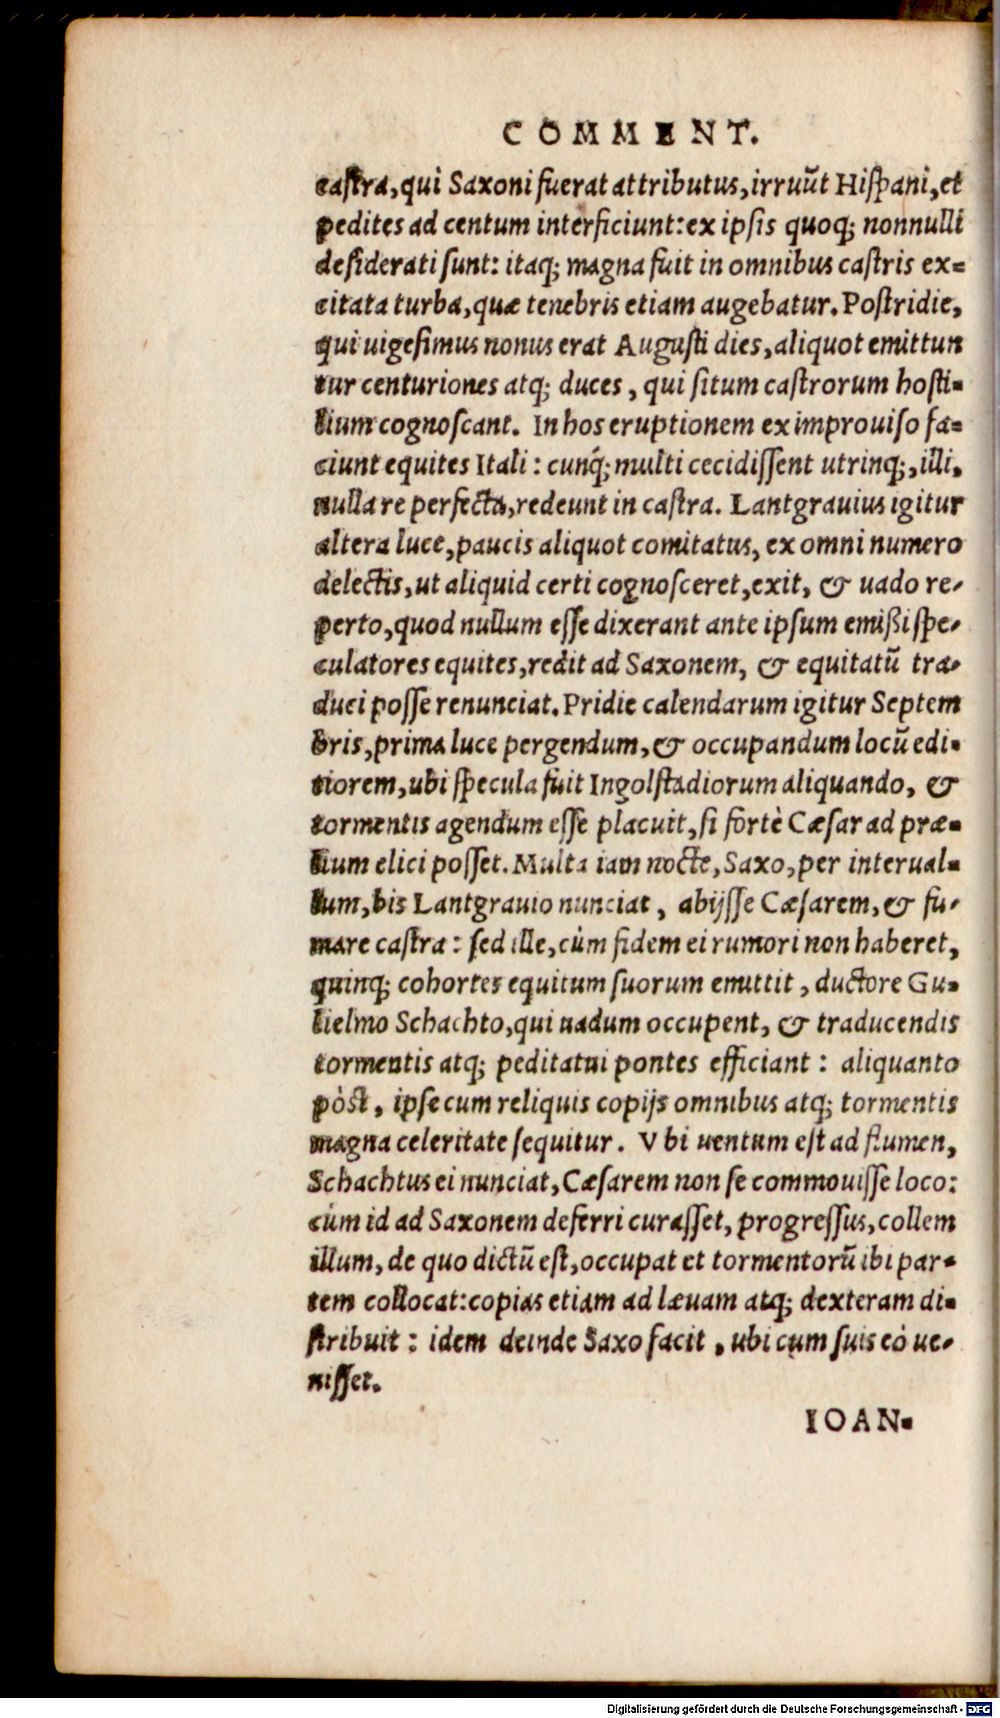 COMMENT.
castra, qui Saxoni fuerat attributus, irruũt Hispani, et
pedites ad centum interficiunt: ex ipsis quoq; nonnulli
desiderati sunt: itaq; magna fuit in omnibus castris ex=
citata turba, quæ tenebris etiam augebatur. Postridie,
qui uigesimus nonus erat Augusti dies, aliquot emittun
tur centuriones atq; duces, qui situm castrorum hosti=
lium cognoscant. In hos eruptionem ex improuiso fa=
ciunt equites Itali: cunq̃; multi cecidissent utrinq;, illi,
nulla re perfecta, redeunt in castra. Lantgrauius igitur
altera luce, paucis aliquot comitatus, ex omni numero
delectis, ut aliquid certi cognosceret, exit, & uado re-
perto, quod nullum esse dixerant ante ipsum emißi spe-
culatores equites, redit ad Saxonem, & equitatũ tra-
duci posse renunciat. Pridie calendarum igitur Septem
bris, prima luce pergendum, & occupandum locũ edi=
tiorem, ubi specula fuit Ingolstadiorum aliquando, &
tormentis agendum esse placuit, si fortè Cæsar ad præ=
lium elici posset. Multa iam nocte, Saxo, per interual=
lum, bis Lantgrauio nunciat, abijsse Cæsarem, & fu-
mare castra: sed ille, cùm fidem ei rumori non haberet,
quinq; cohortes equitum suorum emittit, ductore Gu=
lielmo Schachto, qui uadum occupent, & traducendis
tormentis atq; peditatui pontes efficiant: aliquanto
pòst, ipse cum reliquis copijs omnibus atq; tormentis
magna celeritate sequitur. Vbi uentum est ad flumen,
Schachtus ei nunciat, Cæsarem non se commouisse loco:
cùm id ad Saxonem deferri curasset, progressus, collem
illum, de quo dictũ est, occupat et tormentorũ ibi par-
tem collocat: copias etiam ad læuam atq; dexteram di=
stribuit: idem deinde Saxo facit, ubi cum suis eò ue-
nisset.
IOAN=
Digitalisierung gefördert durch die Deutsche Forschungsgemeinschaft - DFG